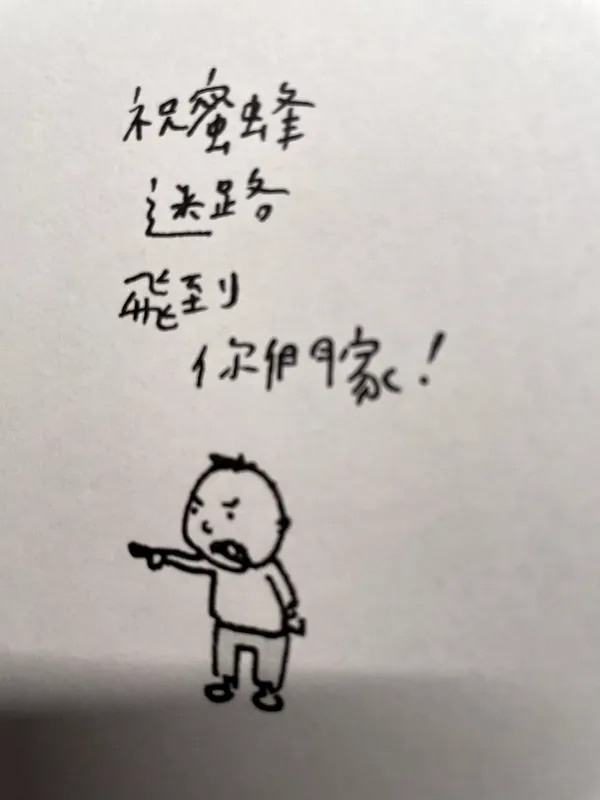 祝蜜蜂
迷路
飛到
你們家！